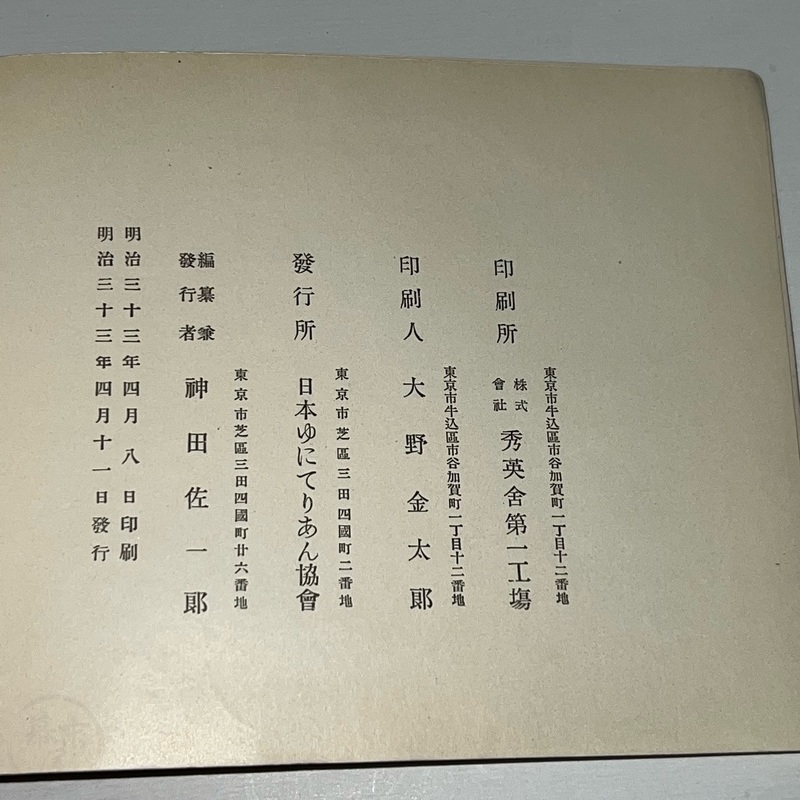 東京市牛込區市谷加賀町一丁目十二番地
印刷所 株式會社 秀英舍第一工塲
東京市牛込區市谷加賀町一丁目十二番地
印刷人 大野金太郎
東京市芝區三田四國町二番地
發行所 日本ゆにてりあん協會
東京市芝區三田四國町廿六番地
編纂兼發行者 神田佐一郎
明治三十三年四月八日印刷
明治三十三年四月十一日發行